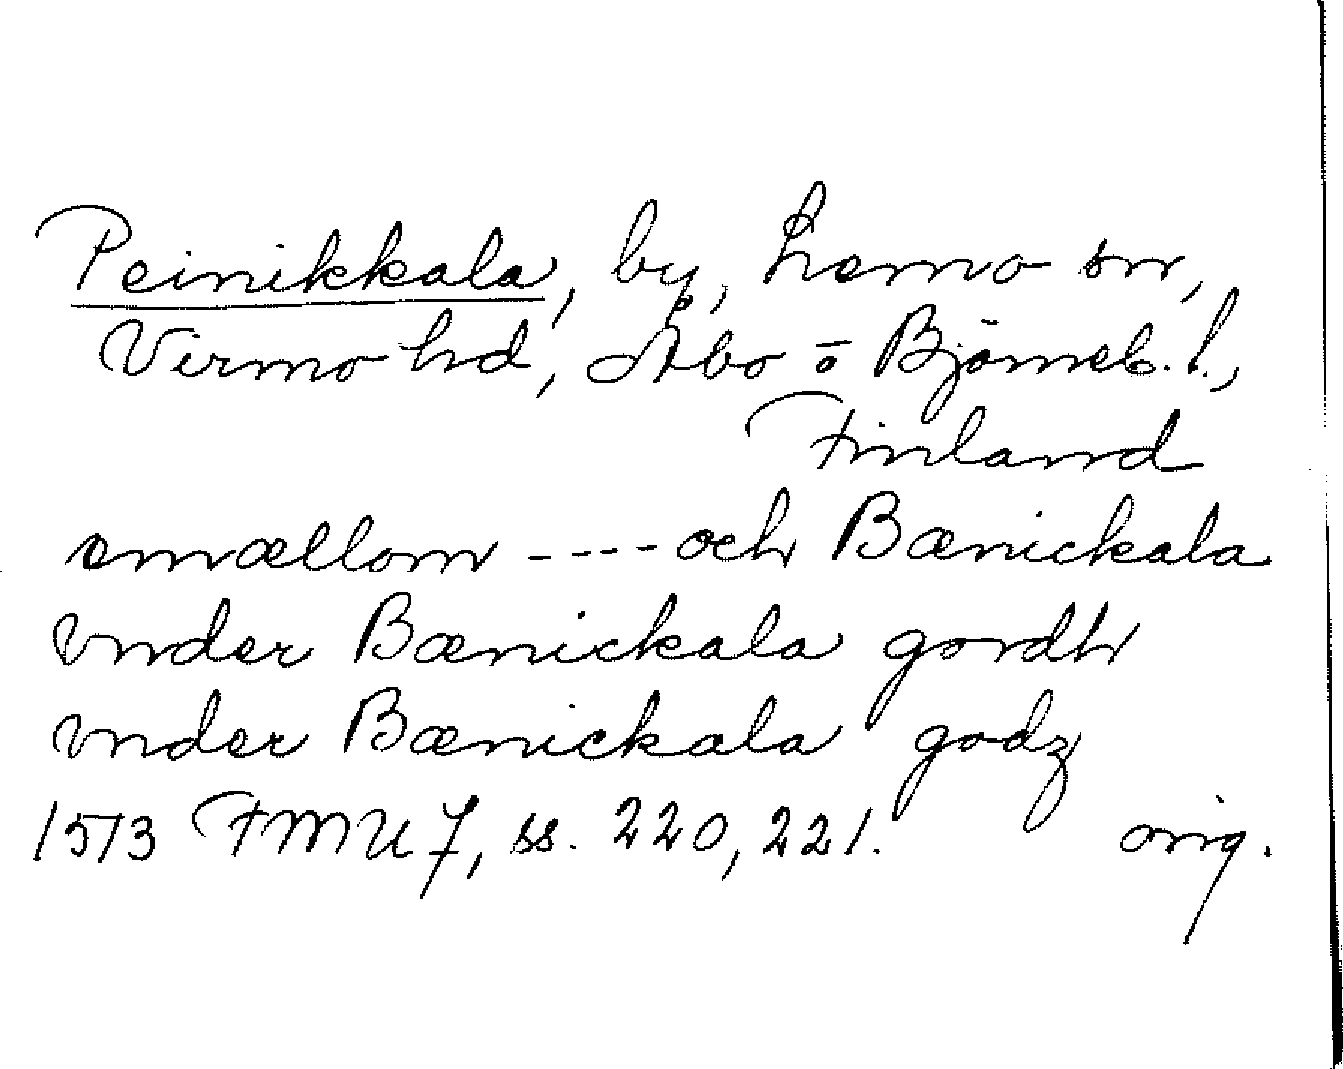 Peinikkala, by, Lemo sn,
Virmo hd, Åbo o Björneb. l.,
Finland
emællom ---- och Bænickala
vnder Bænickala gordh
vnder Bænickala godz
1513 FMU 7, ss. 220, 221. orig.